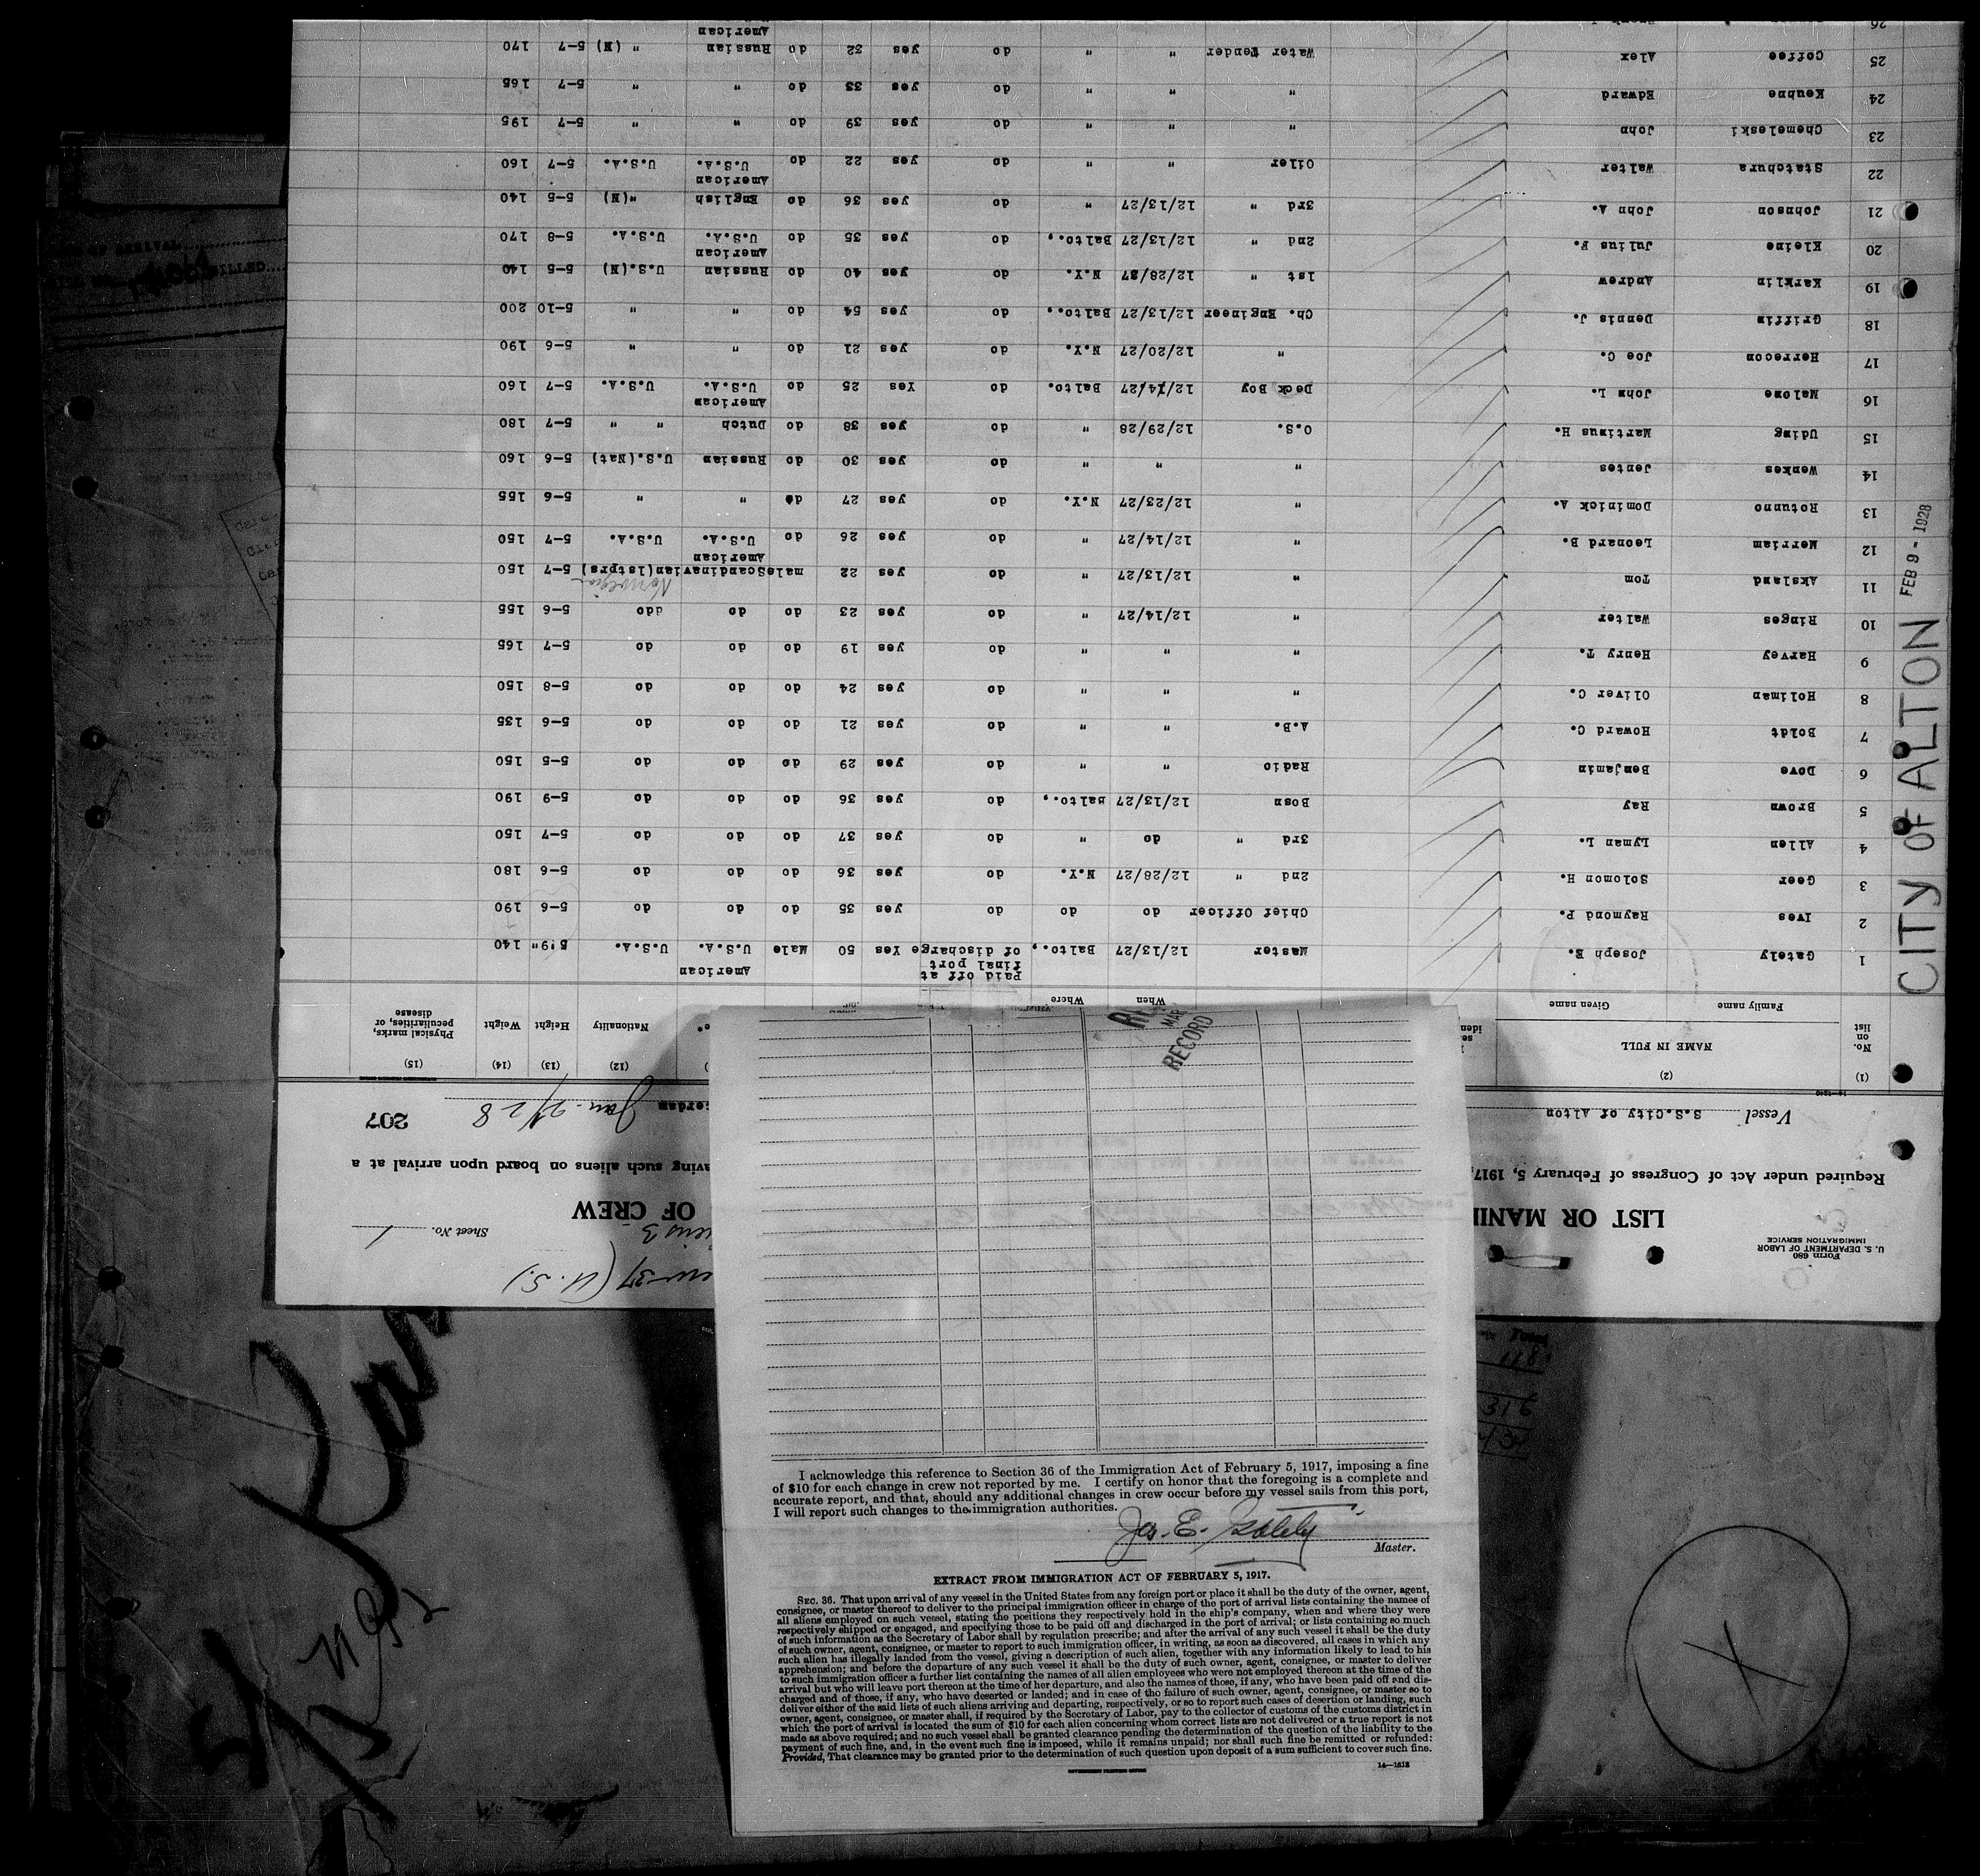 Form 680
U. S. DEPARTMENT OF LABOR
IMMIGRATION SERVICE
(U. S.)
Sheet No. 1
LIST OR MANI
OF CREW
Required under Act of Congress of February 5, 1917,
aving such aliens on board upon arrival at a
Vessel S.S.City of Alton
Jan. 28
207
(1) (2) (12) (13) (14) (15)
No. on list NAME IN FULL Family name Given name When Where Nationality Height Weight Physical marks, peculiarities, or disease
1 Gately Joseph E. Master 12/13/27 Balto., Paid off at final port of discharge Yes 50 Male American U.S.A. U.S.A. 5'9" 140
2 Ives Raymond P. Chief Officer do do do yes 35 do do do 5-6 190
3 Geer Solomon H. 2nd " 12/28/27 N.Y. do yes 36 do do do 5-6 180
4 Allen Lyman L. 3rd " do " do yes 37 do do do 5-7 150
5 Brown Ray Bosn 12/13/27 Balto., do yes 36 do do do 5-9 190
6 Dove Benjamin Radio " " do yes 29 do do do 5-5 150
7 Boldt Howard C. A.B. " " do yes 21 do do do 5-6 135
8 Holman Oliver C. " " " do yes 24 do do do 5-8 150
9 Harvey Henry T. " " " do yes 19 do do do 5-7 165
10 Ringes Walter " 12/14/27 " do yes 23 do do ddo 5-6 155
11 Aksland Tom " 12/13/27 " do yes 22 male Scandinavian(1stprs) Norwegian 5-7 150
12 Merriam Leonard B. " 12/14/27 " do yes 26 do American U.S.A. U.S.A. 5-7 150
13 Rotunno Dominick A. " 12/23/27 N.Y. do yes 27 do " " 5-6 155
14 Wenkes Jentes " " " do yes 30 do Russian U.S.(Nat) 5-6 160
15 Uding Martinus H. O.S. 12/29/28 " do yes 38 do Dutch " " 5-7 180
16 Malone John L. Deck Boy 12/14/27 Balto. do Yes 25 do American U.S.A. U.S.A. 5-7 160
17 Herrecon Joe C. " 12/20/27 N.Y. do yes 21 do " " 5-6 190
18 Griffin Dennis J. Ch. Engineer 12/13/27 Balto., do yes 54 do " " 5-10 200
19 Karklin Andrew 1st " 12/28/27 N.Y. do yes 40 do Russian U.S.(N) 5-5 140
20 Kleine Julius F. 2nd " 12/13/27 Balto., do yes 35 do American U.S.A. U.S.A. 5-8 170
21 Johnson John A. 3rd " 12/13/27 " do yes 36 do English "(N) 5-5 140
22 Statchura Walter Oiler " " do yes 22 do American U.S.A. U.S.A. 5-7 160
23 Chemeleski John " " " do yes 39 do " " 5-7 195
24 Keuhne Edward " " " do yes 33 do " " 5-7 165
25 Coffee Alex Water tender " " do yes 32 do Russian " (N) 5-7 170
26 American
CITY OF ALTON FEB 9 - 1928
RECORD
I acknowledge this reference to Section 36 of the Immigration Act of February 5, 1917, imposing a fine
of $10 for each change in crew not reported by me. I certify on honor that the foregoing is a complete and
accurate report, and that, should any additional changes in crew occur before my vessel sails from this port,
I will report such changes to the immigration authorities.
Jos. E. Gately
Master.
EXTRACT FROM IMMIGRATION ACT OF FEBRUARY 5, 1917.
SEC. 36. That upon arrival of any vessel in the United States from any foreign port or place it shall be the duty of the owner, agent,
consignee, or master thereof to deliver to the principal immigration officer in charge of the port of arrival lists containing the names of
all aliens employed on such vessel, stating the positions they respectively hold in the ship's company, when and where they were
respectively shipped or engaged, and specifying those to be paid off and discharged in the port of arrival; or lists containing so much
of such information as the Secretary of Labor shall by regulation prescribe; and after the arrival of any such vessel it shall be the duty
of such owner, agent, consignee, or master to report to such immigration officer, in writing, as soon as discovered, all cases in which any
such alien has illegally landed from the vessel, giving a description of such alien, together with any information likely to lead to his
apprehension; and before the departure of any such vessel it shall be the duty of such owner, agent, consignee, or master to deliver
to such immigration officer a further list containing the names of all alien employees who were not employed thereon at the time of the
arrival but who will leave port thereon at the time of her departure, and also the names of those, if any, who have been paid off and dis-
charged and of those, if any, who have deserted or landed; and in case of the failure of such owner, agent, consignee, or master so to
deliver either of the said lists of such aliens arriving and departing, respectively, or so to report such cases of desertion or landing, such
owner, agent, consignee, or master shall, if required by the Secretary of Labor, pay to the collector of customs of the customs district in
which the port of arrival is located the sum of $10 for each alien concerning whom correct lists are not delivered or a true report is not
made as above required; and no such vessel shall be granted clearance pending the determination of the question of the liability to the
payment of such fine, and, in the event such fine is imposed, while it remains unpaid; nor shall such fine be remitted or refunded:
Provided, That clearance may be granted prior to the determination of such question upon deposit of a sum sufficient to cover such fine.
GOVERNMENT PRINTING OFFICE